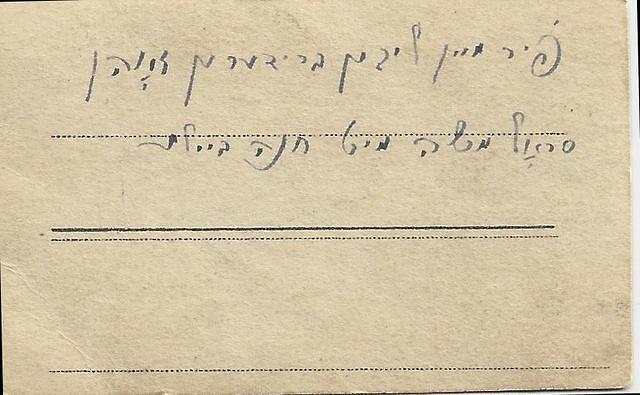 פיר מיין ליבן ברידערס זאָהן
סראָל משה מיט חנה ביילע